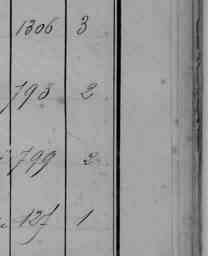 1306 3
793 2
799 2
127 1